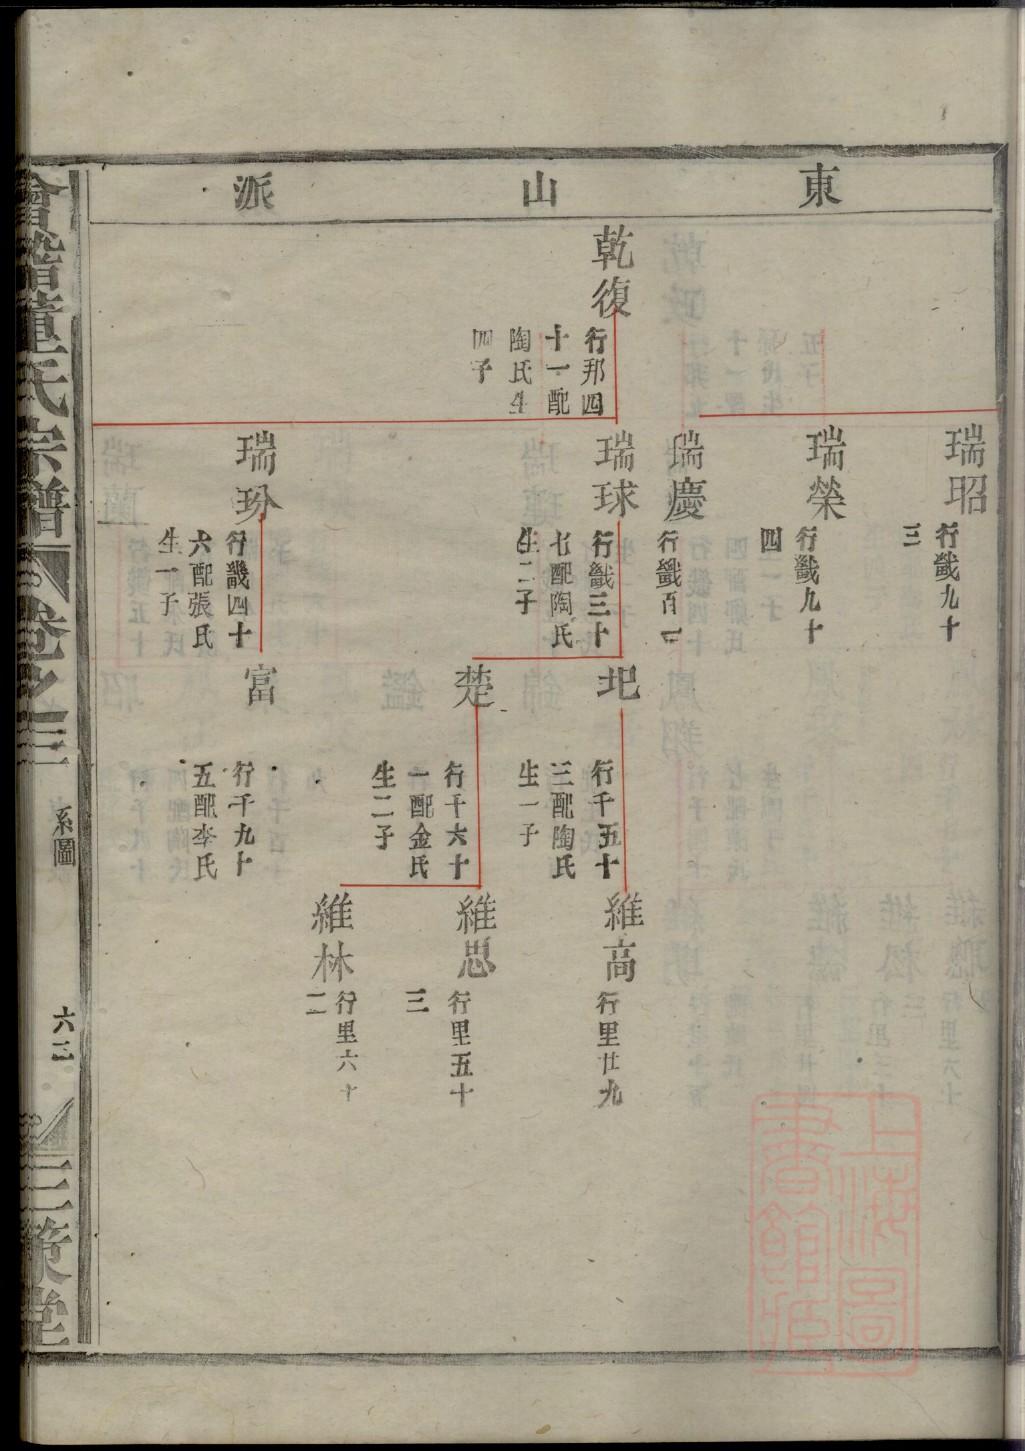 東山派
乾復
行邦四
十一配
陶氏生
四子
瑞昭
行畿九十
三
瑞榮
行畿九十
四
瑞慶
行畿百一
瑞球
行畿三十
七配陶氏
生二子
瑞玢
行畿四十
六配張氏
生一子
圯
行千五十
三配陶氏
生一子
楚
行千六十
一配金氏
生二子
富
行千九十
五配李氏
維高
行里廿九
維思
行里五十
三
維林
行里六十
二
會稽董氏宗譜
卷之三
系圖
六三
三策堂
上海圖書館藏